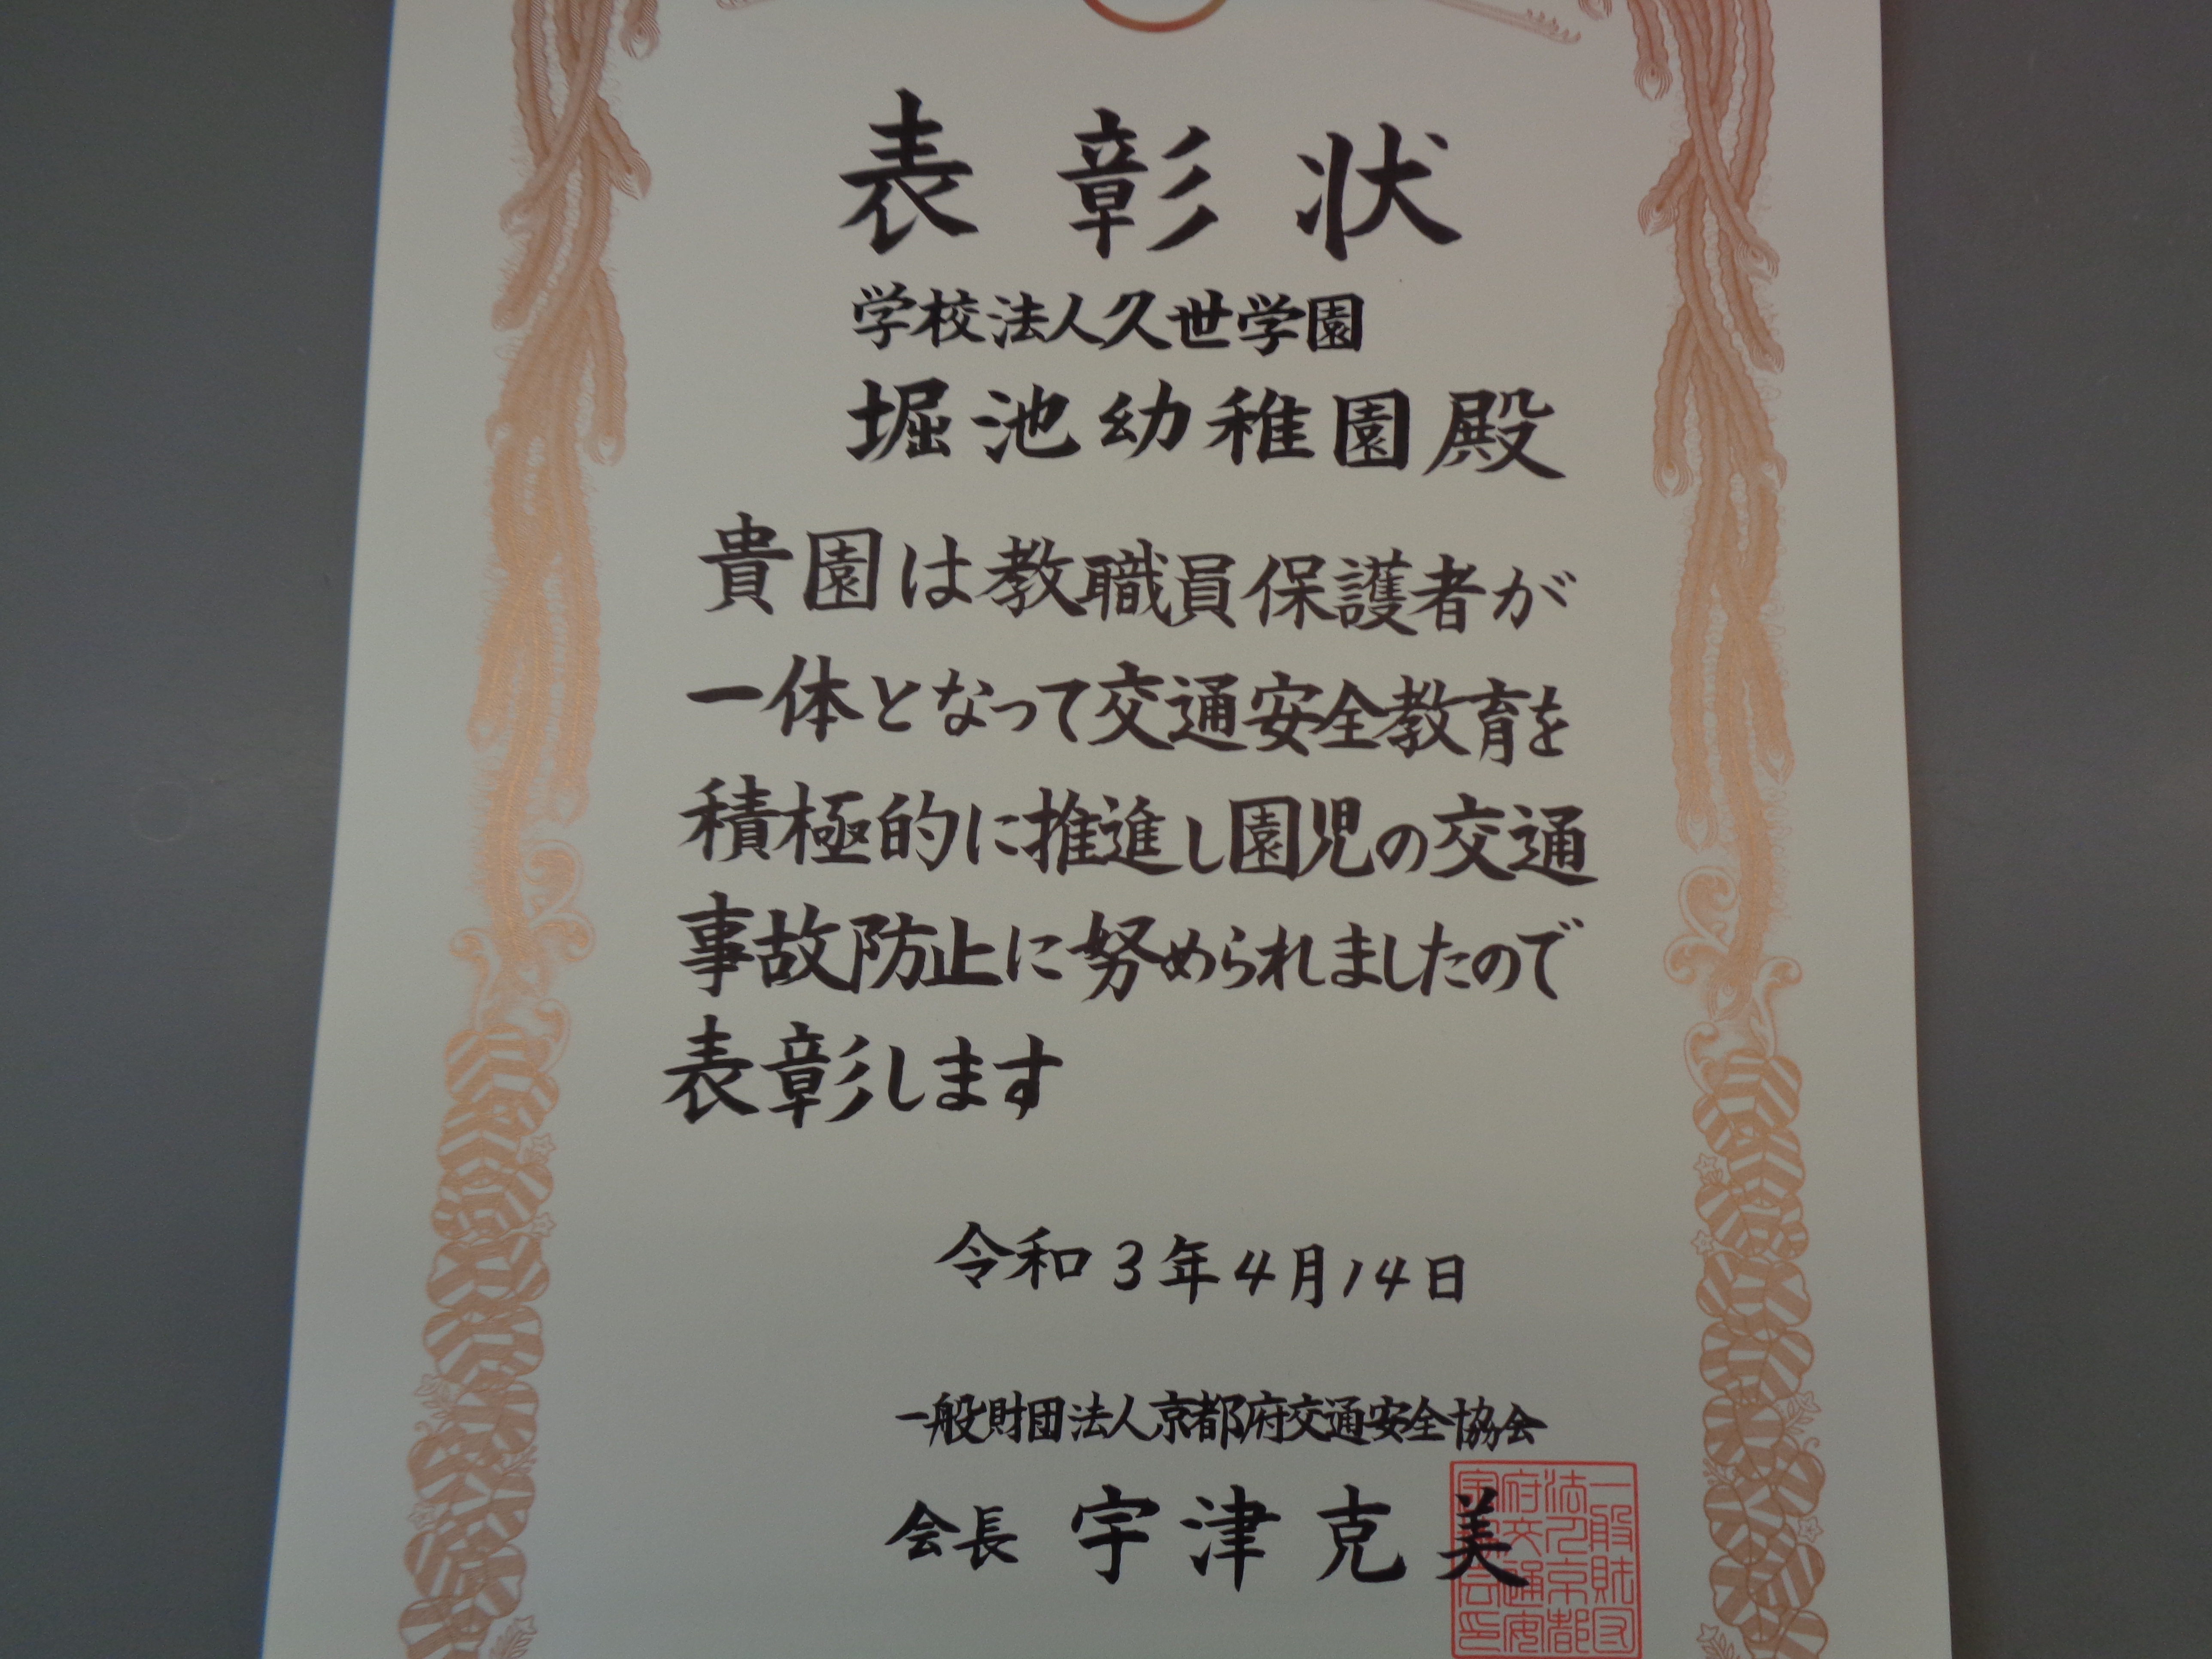 表彰状
学校法人久世学園
堀池幼稚園殿
貴園は教職員保護者が
一体となって交通安全教育を
積極的に推進し園児の交通
事故防止に努められましたので
表彰します
令和3年4月14日
一般財団法人京都府交通安全協会
会長 宇津克美
一般財団
法人京都
府交通安